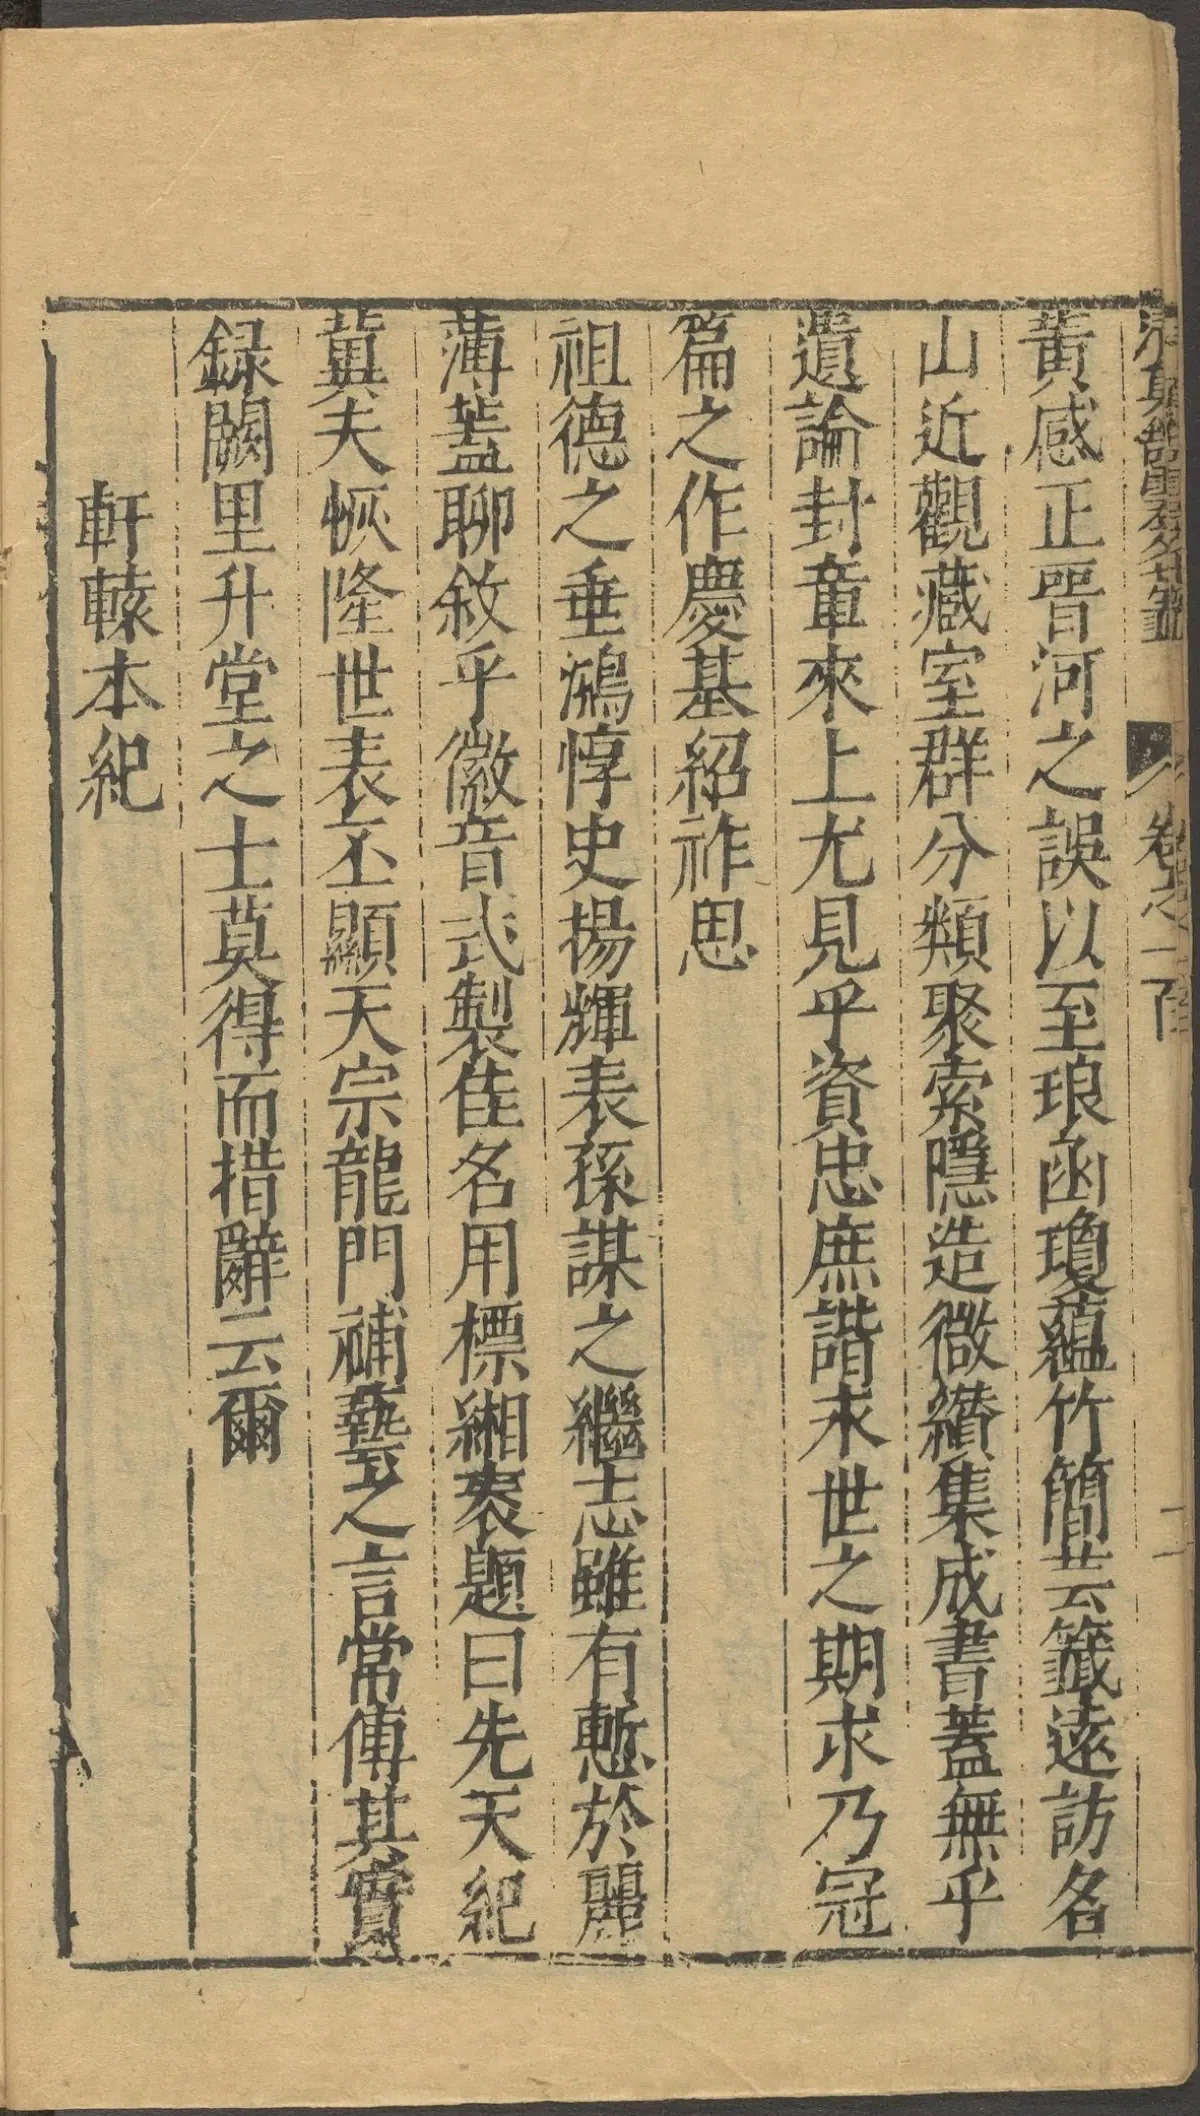 卷之一百
二
黃感正晋河之誤以至琅函瓊蘊竹簡芸籤遠訪名
山近觀藏室群分類聚索隱造微纘集成書蓋無乎
遺論封章來上尤見乎資忠庶諧求世之期求乃冠
篇之作慶基紹祚思
祖德之垂鴻惇史揚輝表孫謀之繼志雖有慙於麗
薄蓋聊敘乎徽音式製佳名用標緗袠題曰先天紀
冀夫恢隆世表丕顯天宗龍門補藝之言常傳其實
録闕里升堂之士莫得而措辭云爾
軒轅本紀